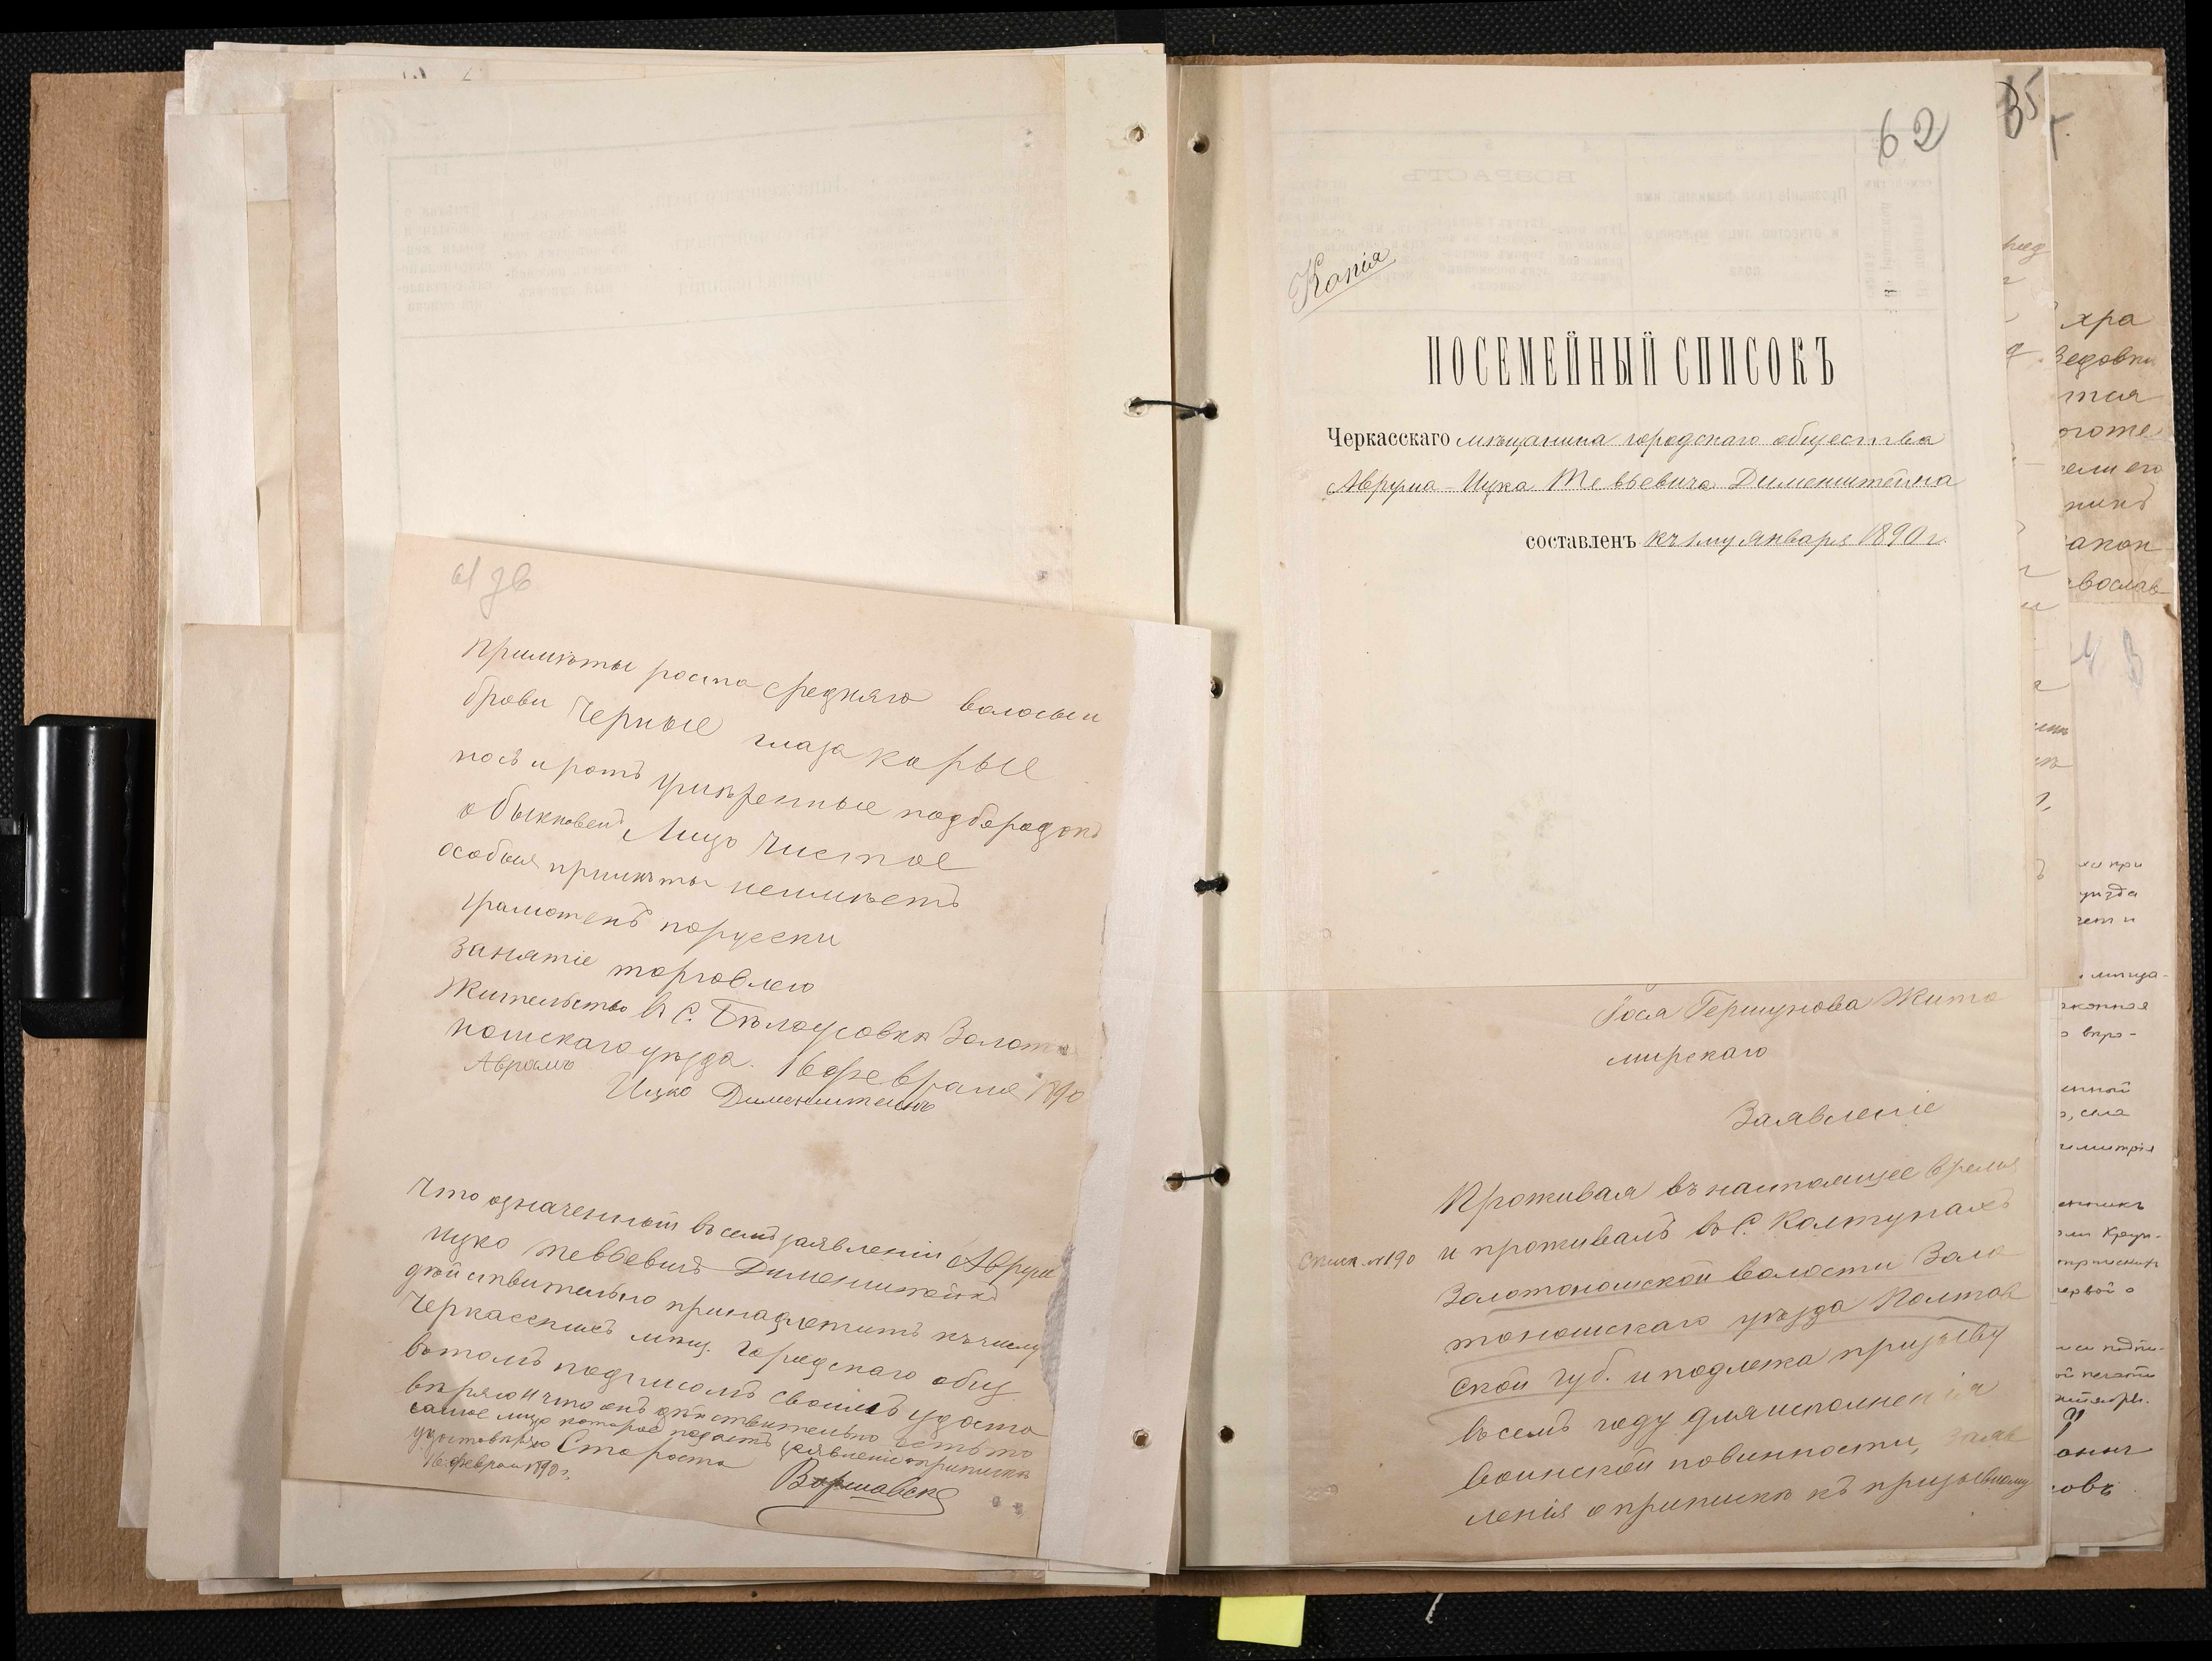 61 зв
Примѣты роста средняго волосы и
брови черные глаза карые
носъ и ротъ умѣренные подбородокъ
обыкновен Лицо чистое
особыя примѣты неимѣетъ
грамотенъ порусски
занятіе торговлею
Жительство въ С. Бѣлоусовка Золото
ношскаго уѣзда. 16 февраля 1890
Аврамъ
Ицко Дименштейнъ
Что означенный въ семъ заявленіи Аврум
Ицко Тевьевичъ Дименштейнъ
дѣйствительно принадлежитъ къ числу
Черкасскихъ мѣщ. городскаго общ
въ томъ подписомъ своимъ удосто
вѣряю и что онъ дѣйствительно есть то
самое лицо которое подаетъ заявленіе о припискѣ
удостовѣряю Староста
16 февраля 1890 г.
Варшавск
62
35
Копія
ПОСЕМЕЙНЫЙ СПИСОКЪ
Черкасскаго мѣщанина городскаго общества
Аврума-Ицка Тевьевича Дименштейна
составленъ къ 1му января 1890 г.
Гершунова Жито
мирскаго
Заявленіе
Проживая въ настоящее время
и проживалъ въ С. Колтунахъ
№190
Золотоношской волости Золо
тоношскаго уѣзда Полтав
ской губ. и подлежа призыву
въ семъ году для исполненія
воинской повинности, заяв
ленія о припискѣ къ призывному